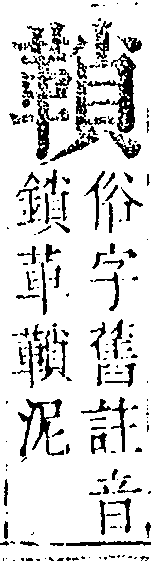 俗字舊註音
鎖革泥